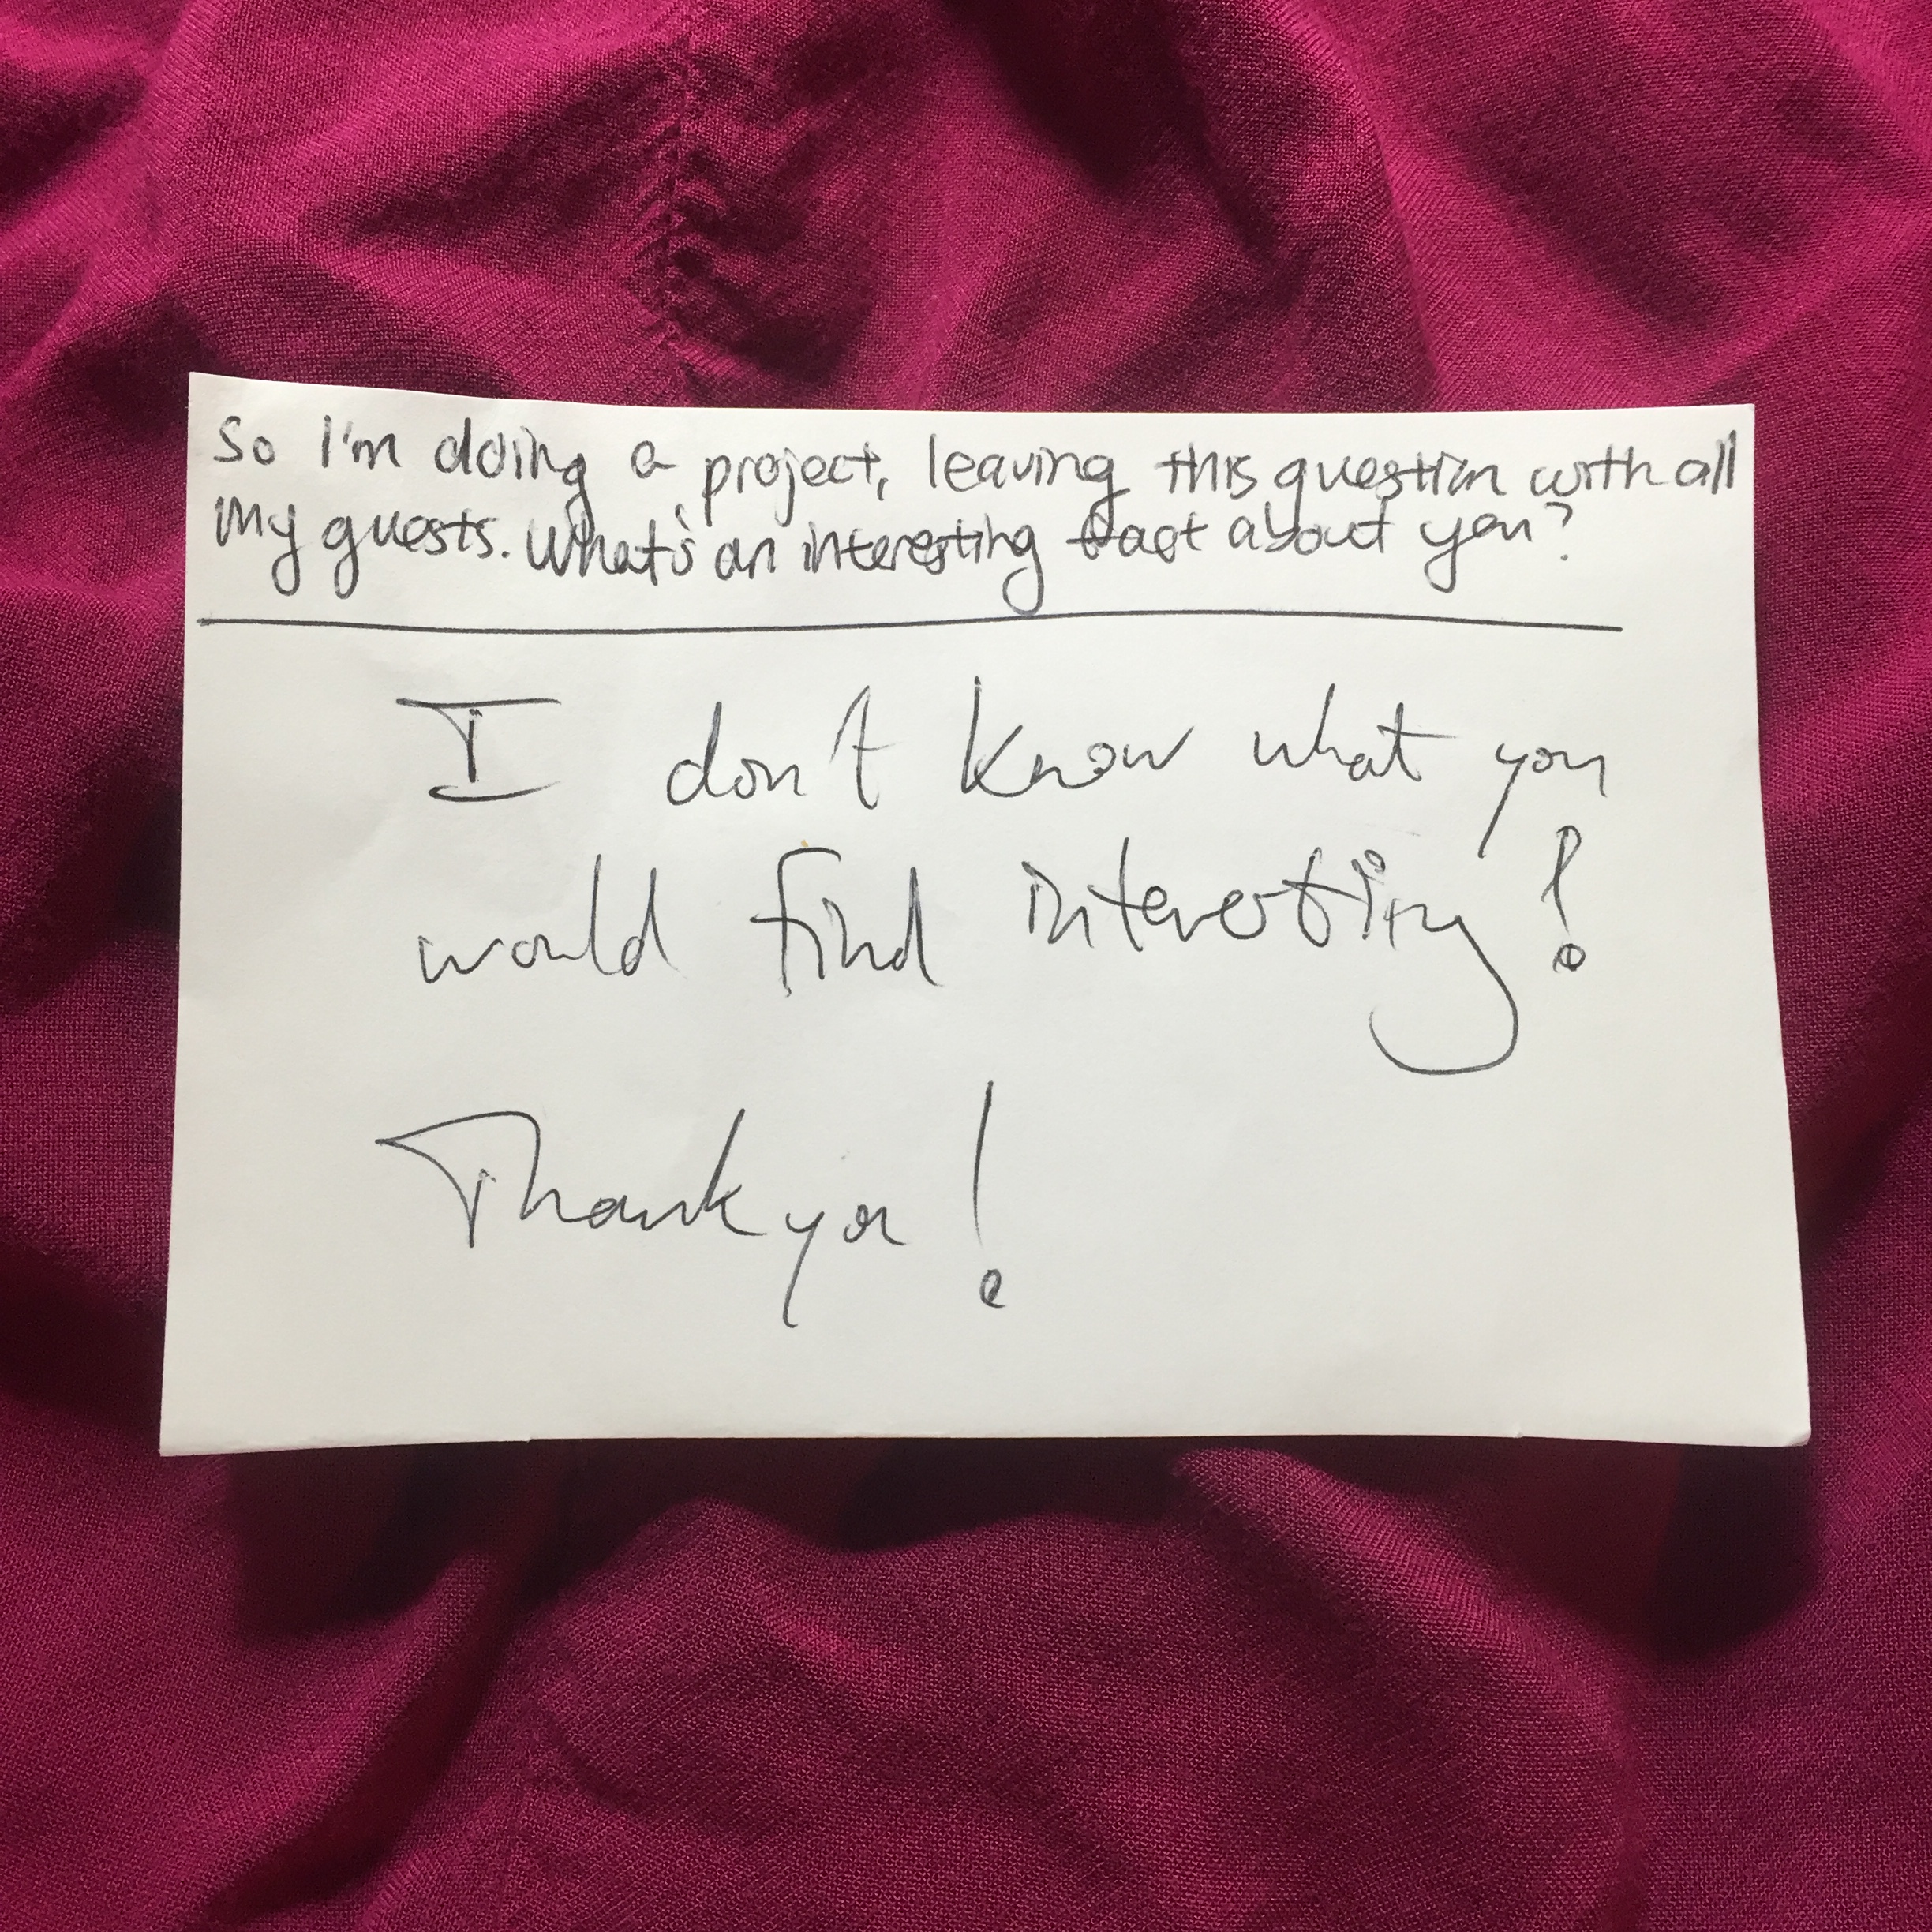 So I'm doing a project, leaving this question with all
my guests. What's an interesting fact about you?
I don't know what you
would find interesting!
Thank you!